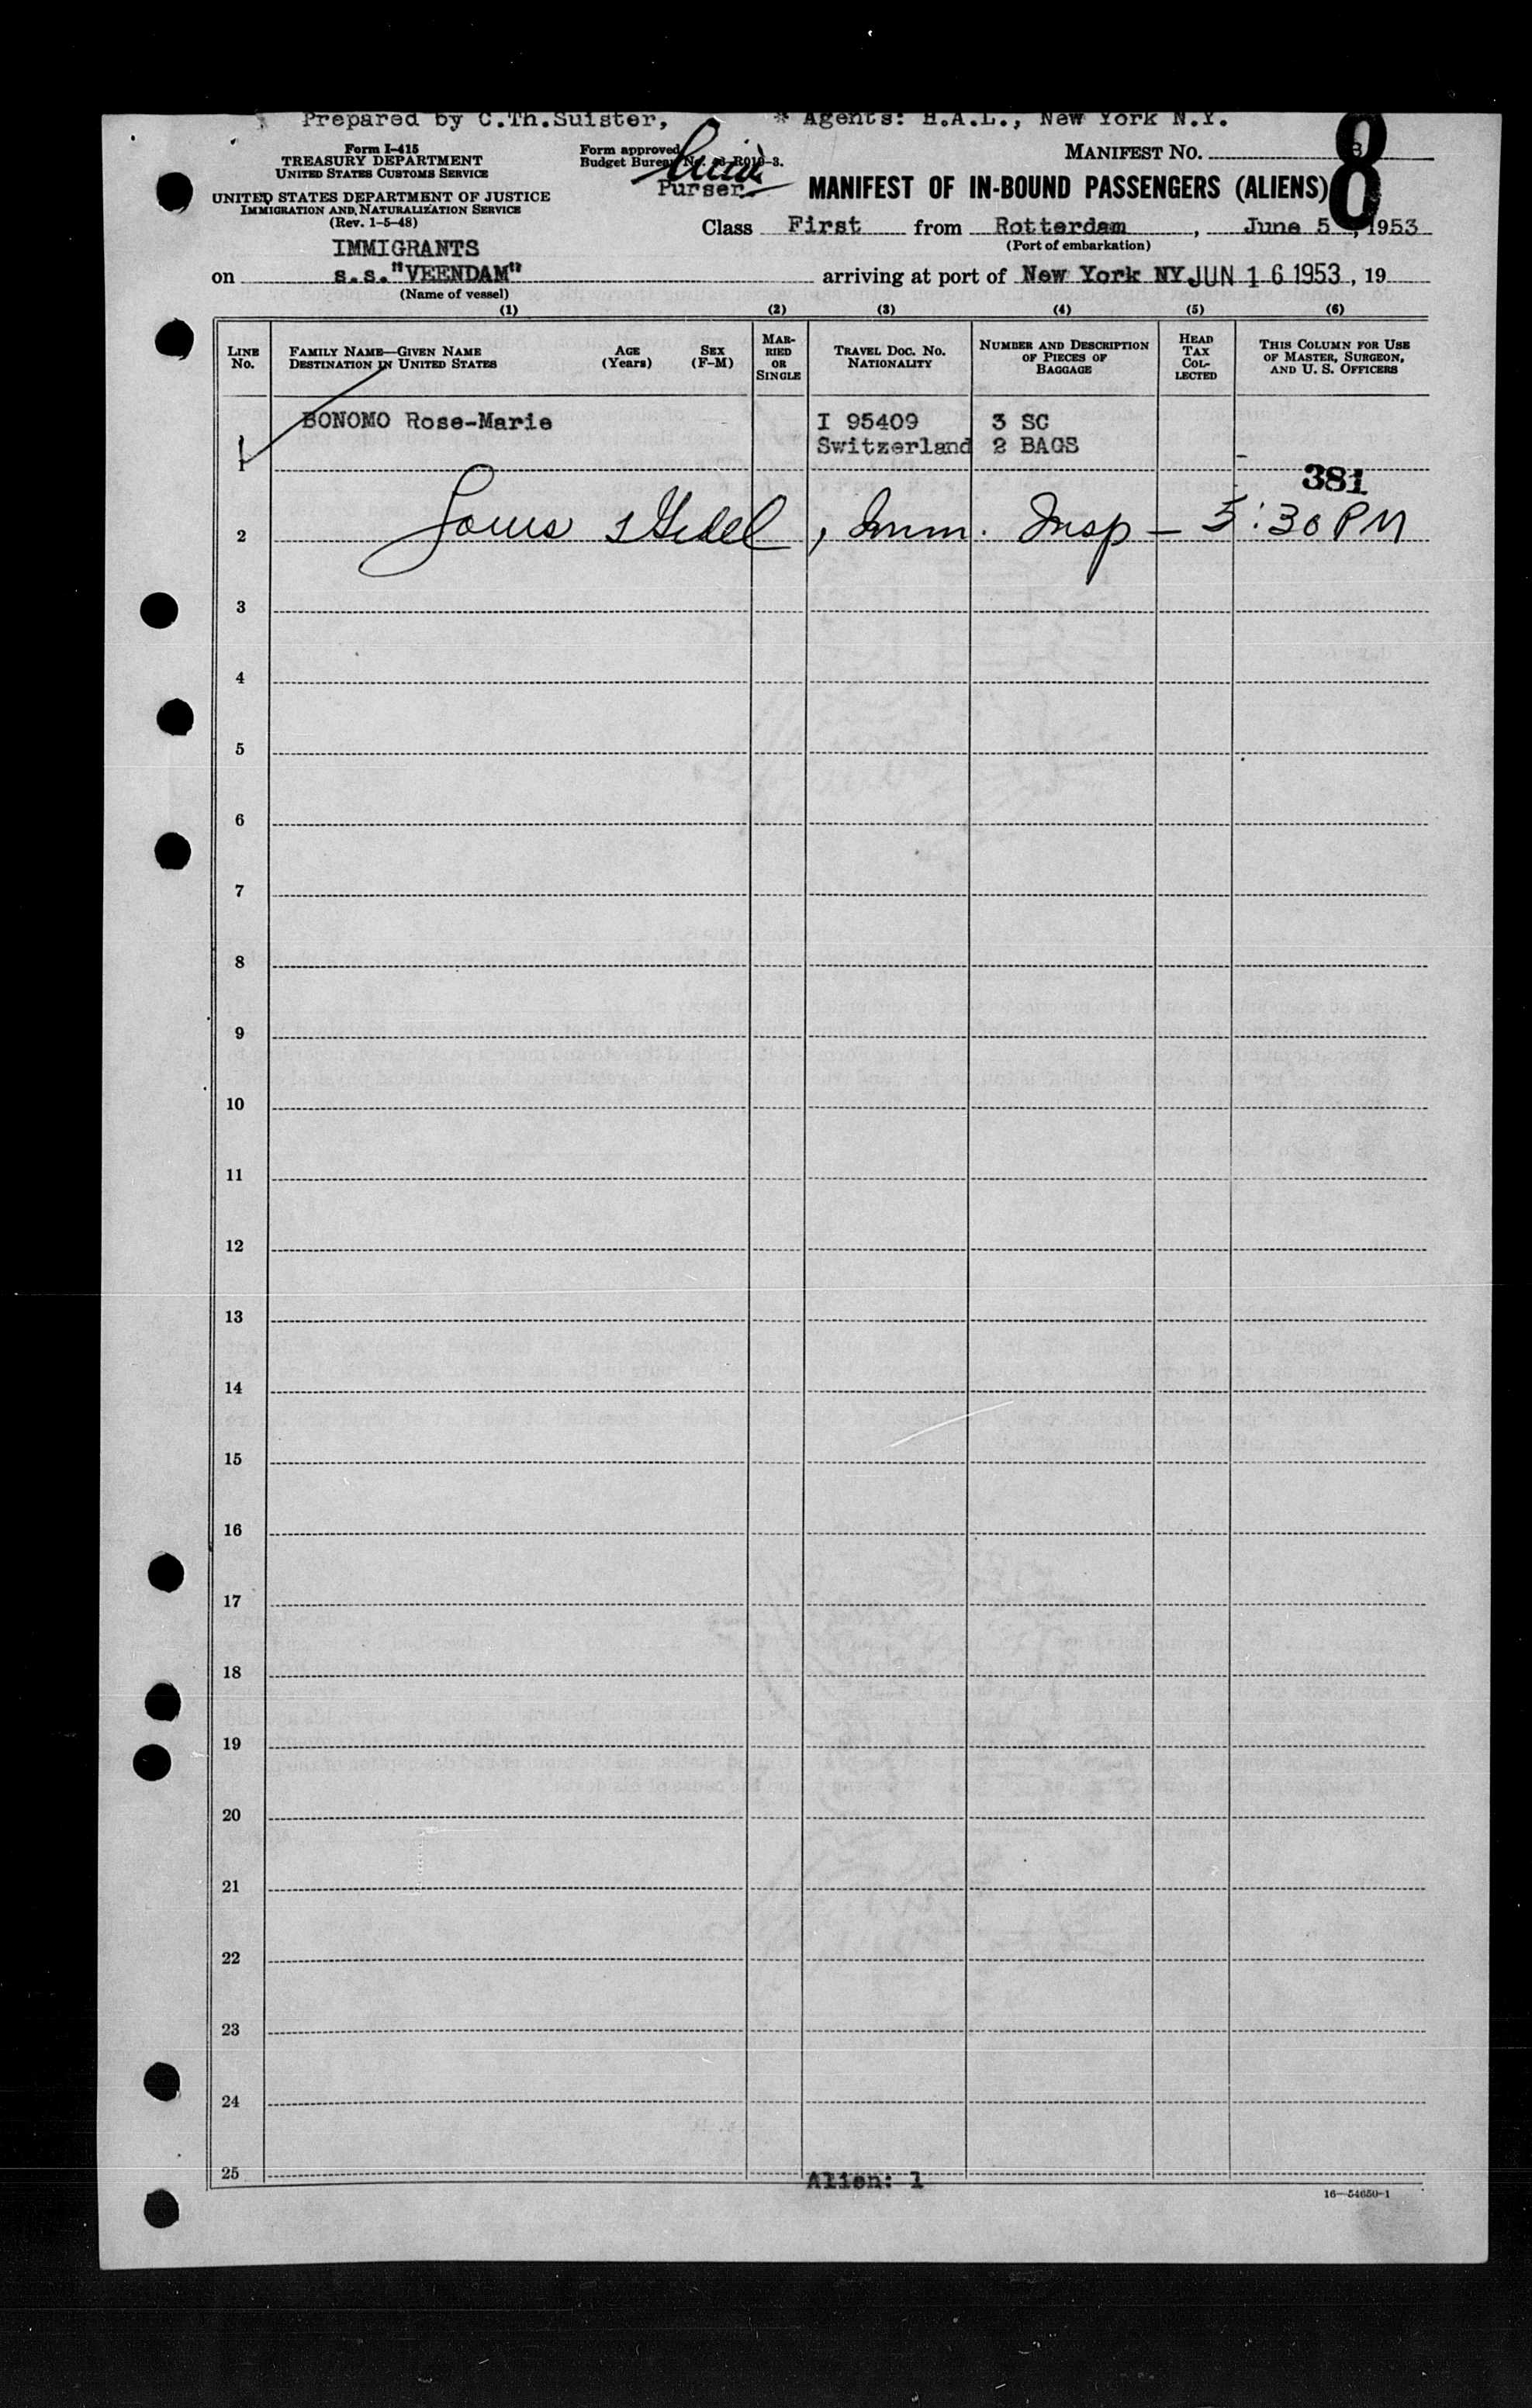 Prepared by C.Th.Suister, * Agents: H.A.L., New York N.Y.
Form I-415
TREASURY DEPARTMENT
UNITED STATES CUSTOMS SERVICE
UNITED STATES DEPARTMENT OF JUSTICE
IMMIGRATION AND NATURALIZATION SERVICE
(Rev. 1-5-48)
Form approved
Budget Bureau No.
Purser
MANIFEST NO. 8
8
MANIFEST OF IN-BOUND PASSENGERS (ALIENS)
Class First from Rotterdam, June 5, 1953
(Port of embarkation)
IMMIGRANTS
on s.s."VEENDAM" arriving at port of New York NY JUN 16 1953, 19
(Name of vessel)
(1) (2) (3) (4) (5) (6)
LINE No.
FAMILY NAME—GIVEN NAME
DESTINATION IN UNITED STATES
AGE (Years)
SEX (F-M)
MARRIED OR SINGLE
TRAVEL DOC. NO.
NATIONALITY
NUMBER AND DESCRIPTION OF PIECES OF BAGGAGE
HEAD TAX COLLECTED
THIS COLUMN FOR USE OF MASTER, SURGEON, AND U. S. OFFICERS
1 BONOMO Rose-Marie I 95409 3 SC
Switzerland 2 BAGS
381
2 Louis , Imm. Insp - 5:30 PM
3
4
5
6
7
8
9
10
11
12
13
14
15
16
17
18
19
20
21
22
23
24
25
Alien: 1
16—54650-1